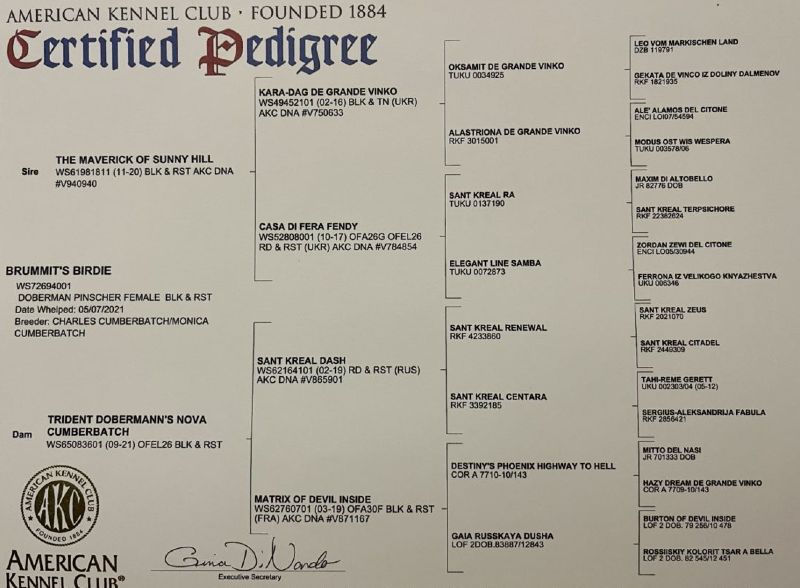 AMERICAN KENNEL CLUB · FOUNDED 1884
Certified Pedigree
Sire
THE MAVERICK OF SUNNY HILL
WS61981811 (11-20) BLK & RST AKC DNA
#V940940
BRUMMIT'S BIRDIE
WS72694001
DOBERMAN PINSCHER FEMALE BLK & RST
Date Whelped: 05/07/2021
Breeder: CHARLES CUMBERBATCH/MONICA
CUMBERBATCH
Dam
TRIDENT DOBERMANN'S NOVA
CUMBERBATCH
WS65083601 (09-21) OFEL26 BLK & RST
KARA-DAG DE GRANDE VINKO
WS49452101 (02-16) BLK & TN (UKR)
AKC DNA #V750633
CASA DI FERA FENDY
WS52808001 (10-17) OFA26G OFEL26
RD & RST (UKR) AKC DNA #V784854
SANT KREAL DASH
WS62164101 (02-19) RD & RST (RUS)
AKC DNA #V865901
MATRIX OF DEVIL INSIDE
WS62760701 (03-19) OFA30F BLK & RST
(FRA) AKC DNA #V871167
OKSAMIT DE GRANDE VINKO
TUKU 0034925
ALASTRIONA DE GRANDE VINKO
RKF 3015001
SANT KREAL RA
TUKU 0137190
ELEGANT LINE SAMBA
TUKU 0072873
SANT KREAL RENEWAL
RKF 4233860
SANT KREAL CENTARA
RKF 3392185
DESTINY'S PHOENIX HIGHWAY TO HELL
COR A 7710-10/143
GAIA RUSSKAYA DUSHA
LOF 2DOB.83887/12843
LEO VOM MARKISCHEN LAND
DZB 119791
GEKATA DE VINCO IZ DOLINY DALMENOV
RKF 1821935
ALE' ALAMOS DEL CITONE
ENCI LOI07/54594
MODUS OST WIS WESPERA
TUKU 003578/06
MAXIM DI ALTOBELLO
JR 82776 DOB
SANT KREAL TERPSICHORE
RKF 22362624
ZORDAN ZEWI DEL CITONE
ENCI LO05/30944
FERRONA IZ VELIKOGO KNYAZHESTVA
UKU 006346
SANT KREAL ZEUS
RKF 2021070
SANT KREAL CITADEL
RKF 2449309
TAHI-REME GERETT
UKU 002303/04 (05-12)
SERGIUS-ALEKSANDRIJA FABULA
RKF 2856421
MITTO DEL NASI
JR 701333 DOB
HAZY DREAM DE GRANDE VINKO
COR A 7709-10/143
BURTON OF DEVIL INSIDE
LOF 2 DOB. 79 256/10 478
ROSSIISKIY KOLORIT TSAR A BELLA
LOF 2 DOB. 82 545/12 451
AMERICAN KENNEL CLUB
AKC
FOUNDED 1884
AMERICAN
KENNEL CLUB®
Gina DiNardo
Executive Secretary